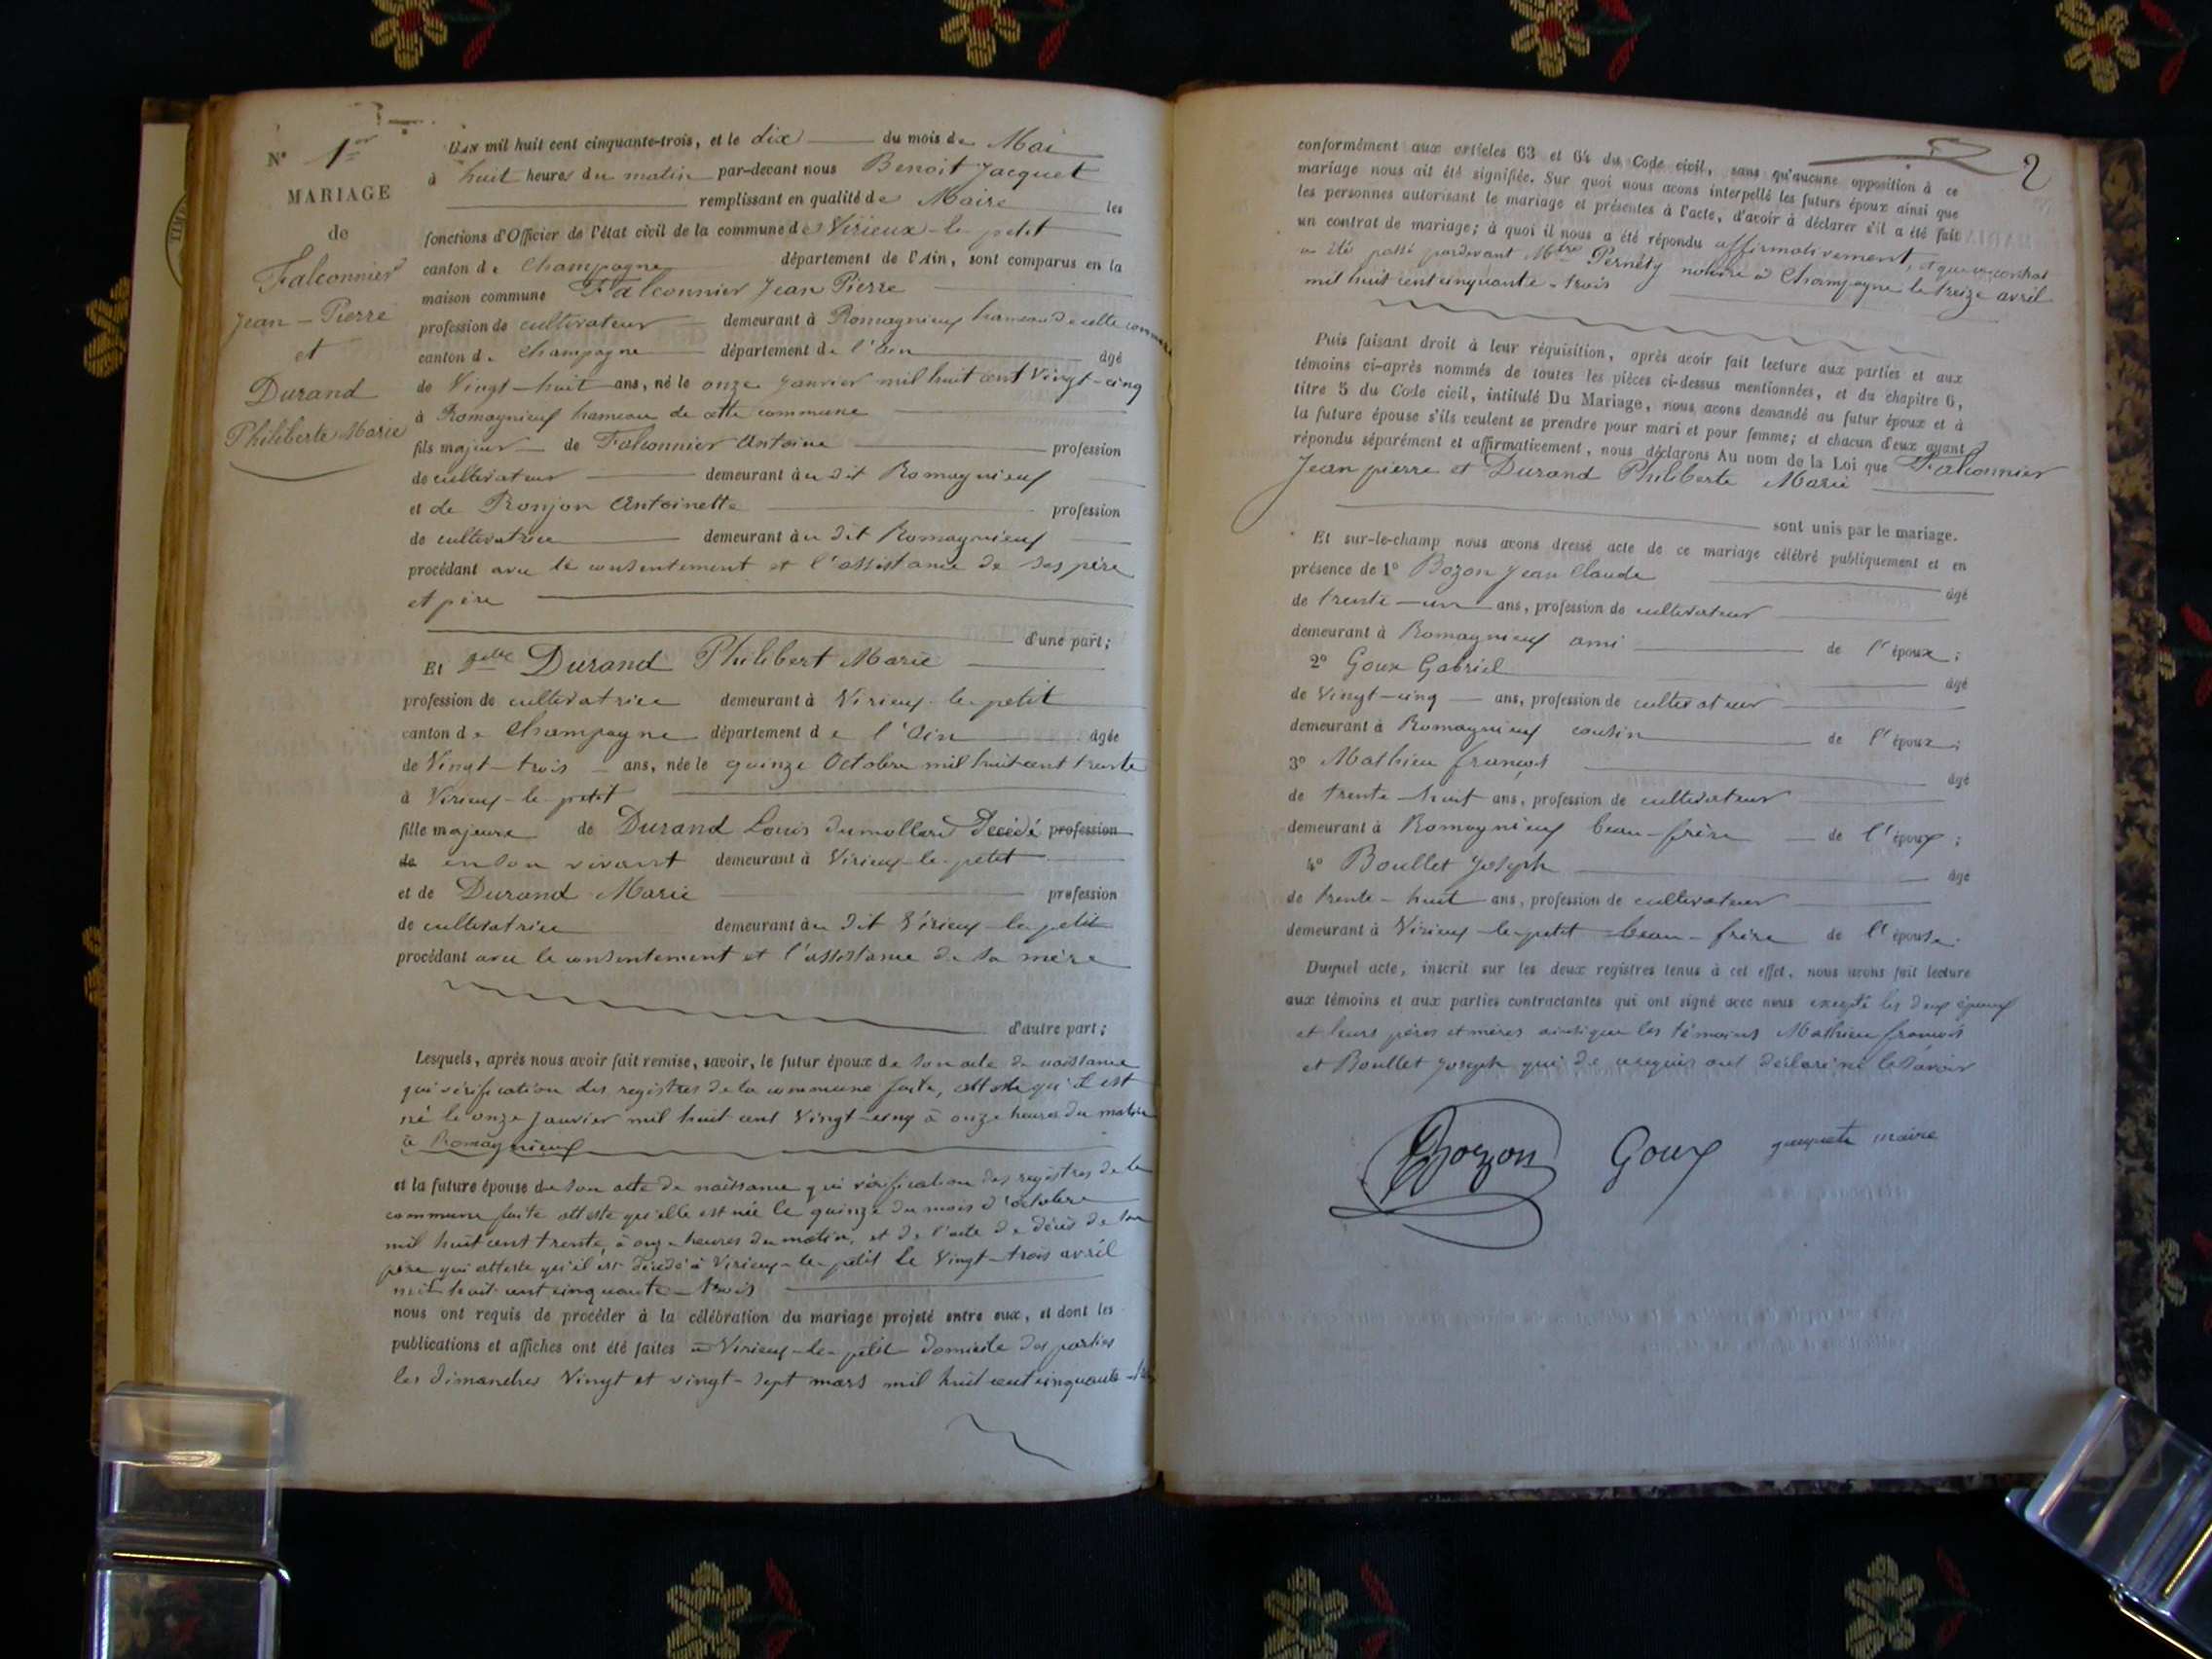 N° 1er
MARIAGE
de
Falconnier
Jean - Pierre
et
Durand
Philiberte Marie
L'an mil huit cent cinquante-trois, et le dix du mois de Mai
à huit heures du matin par-devant nous Benoit Jacquet
remplissant en qualité de Maire les
fonctions d'Officier de l'état civil de la commune de Virieux-le petit
canton de Champagne département de l'Ain, sont comparus en la
maison commune Falconnier Jean Pierre
profession de cultivateur demeurant à Romagnieux hameau de cette commune
canton de Champagne département de l'Ain âgé
de Vingt-huit ans, né le onze Janvier mil huit cent Vingt-cinq
à Romagnieux hameau de cette commune
fils majeur de Falconnier Antoine profession
de cultivateur demeurant au dit Romagnieux
et de Ronjon Antoinette profession
de cultivatrice demeurant au dit Romagnieux
procédant avec le consentement et l'assistance de ses père
et père
d'une part;
Et Delle Durand Philibert Marie
profession de cultivatrice demeurant à Virieux-le-petit
canton de Champagne département de l'Ain âgée
de Vingt-trois ans, née le quinze Octobre mil huit cent trente
à Virieux-le-petit
fille majeure de Durand Louis dumollard Décédé profession
de en son vivant demeurant à Virieux-le-petit
et de Durand Marie profession
de cultivatrice demeurant au dit Virieux-le-petit
procédant avec le consentement et l'assistance de sa mère
d'autre part;
Lesquels, après nous avoir fait remise, savoir, le futur époux de son acte de naissance
qui vérification des registres de la commune faite, atteste qu'il est
né le onze Janvier mil huit cent Vingt-cinq à onze heures du matin
à Romagnieux
et la future épouse de son acte de naissance qui vérification des registres de la
commune faite atteste qu'elle est née le quinze du mois d'octobre
mil huit cent trente, à onze heures du matin, et de l'acte de décès de son
père qui atteste qu'il est décédé à Virieux-le-petit le Vingt-trois avril
mil huit cent cinquante-trois
nous ont requis de procéder à la célébration du mariage projeté entre eux, et dont les
publications et affiches ont été faites à Virieux-le-petit domicile des parties
les dimanches Vingt et vingt-sept mars mil huit cent cinquante-trois
2
conformément aux articles 63 et 64 du Code civil, sans qu'aucune opposition à ce
mariage nous ait été signifiée. Sur quoi nous avons interpellé les futurs époux ainsi que
les personnes autorisant le mariage et présentes à l'acte, d'avoir à déclarer s'il a été fait
un contrat de mariage; à quoi il nous a été répondu affirmativement, et que ce contrat
a été passé pardevant Mtre Pernéty notaire à Champagne le treize avril
mil huit cent cinquante-trois
Puis faisant droit à leur réquisition, après avoir fait lecture aux parties et aux
témoins ci-après nommés de toutes les pièces ci-dessus mentionnées, et du chapitre 6,
titre 5 du Code civil, intitulé Du Mariage, nous avons demandé au futur époux et à
la future épouse s'ils veulent se prendre pour mari et pour femme; et chacun d'eux ayant
répondu séparément et affirmativement, nous déclarons Au nom de la Loi que Falconnier
Jean pierre et Durand Philiberte Marie
sont unis par le mariage.
Et sur-le-champ nous avons dressé acte de ce mariage célébré publiquement et en
présence de 1° Bozon Jean Claude âgé
de trente-un ans, profession de cultivateur
demeurant à Romagnieux ami de l'époux;
2° Goux Gabriel âgé
de Vingt-cinq ans, profession de cultivateur
demeurant à Romagnieux cousin de l'époux;
3° Mathieu françois âgé
de trente-huit ans, profession de cultivateur
demeurant à Romagnieux beau-frère de l'époux;
4° Boullet Joseph âgé
de trente-huit ans, profession de cultivateur
demeurant à Virieux-le-petit beau-frère de l'épouse.
Duquel acte, inscrit sur les deux registres tenus à cet effet, nous avons fait lecture
aux témoins et aux parties contractantes qui ont signé avec nous excepté les deux époux
et leurs pères et mères ainsi que les témoins Mathieu françois
et Boullet Joseph qui de ce requis ont déclaré ne le savoir
Bozon Goux maire